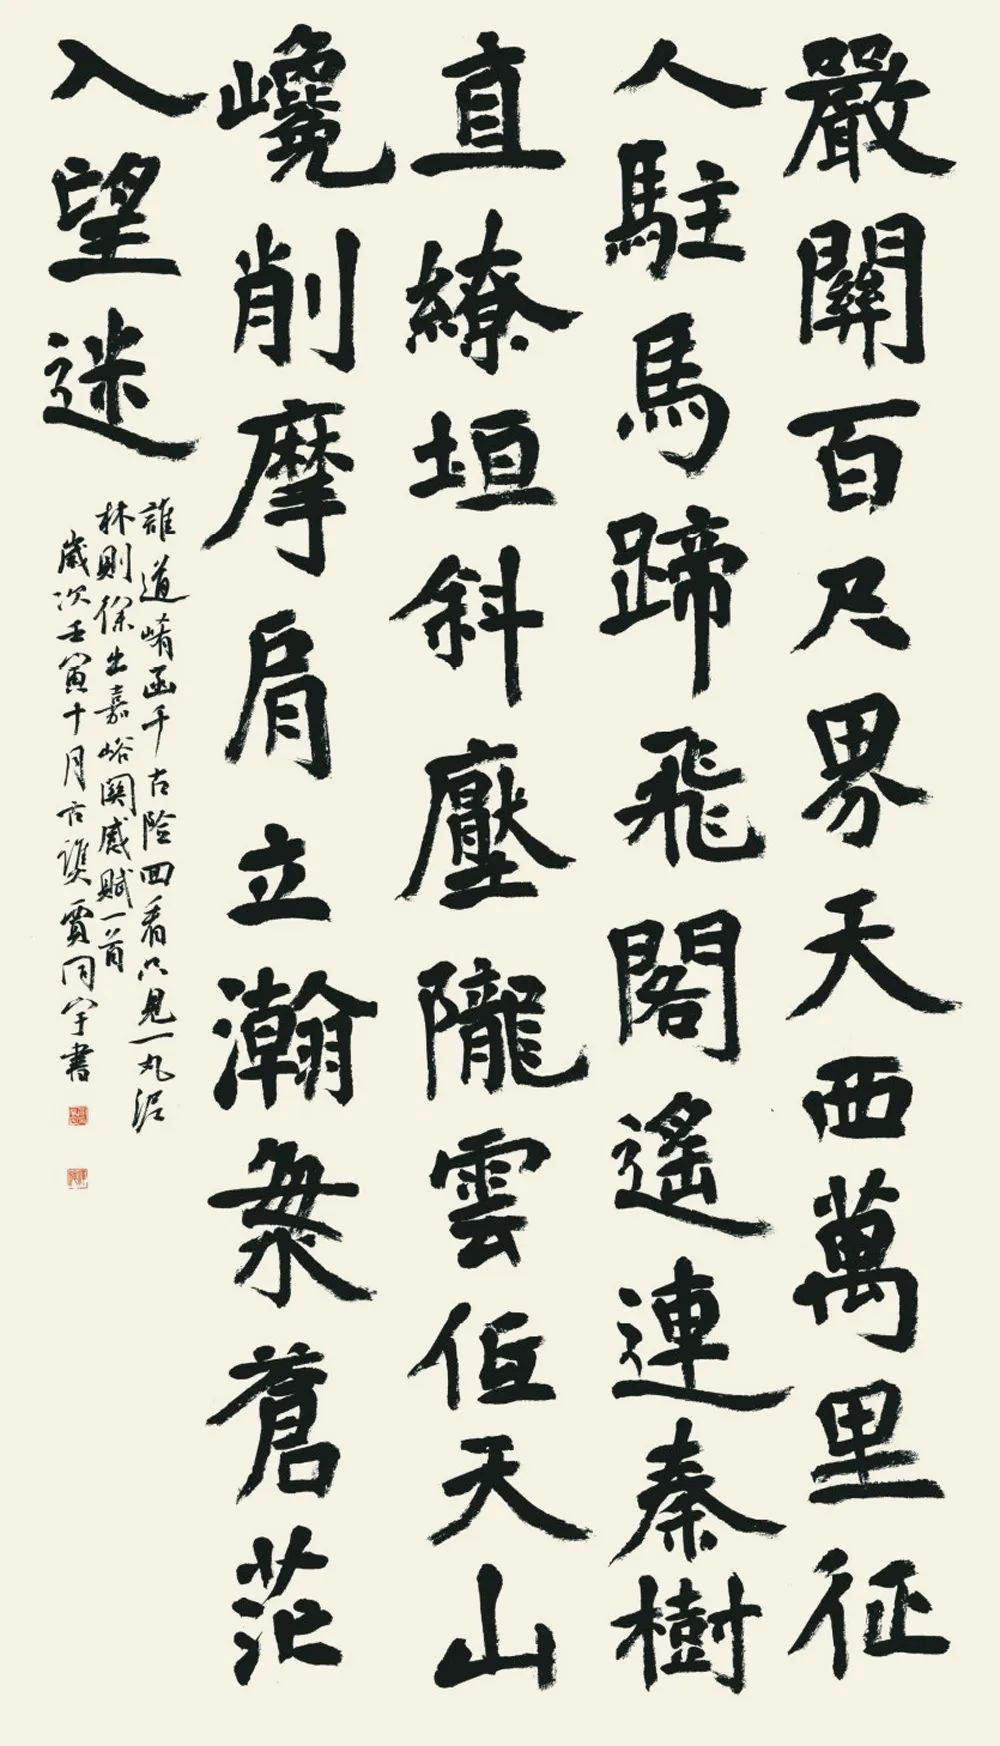 嚴關百尺界天西萬里征
人駐馬蹄飛閣遙連秦樹
直繚垣斜壓隴雲低天山
巉削摩肩立瀚海蒼茫
入望迷
誰道崤函千古险回看只見一丸泥
林則徐出嘉峪關感賦一首
歲次壬寅十月古譙賈同宇書